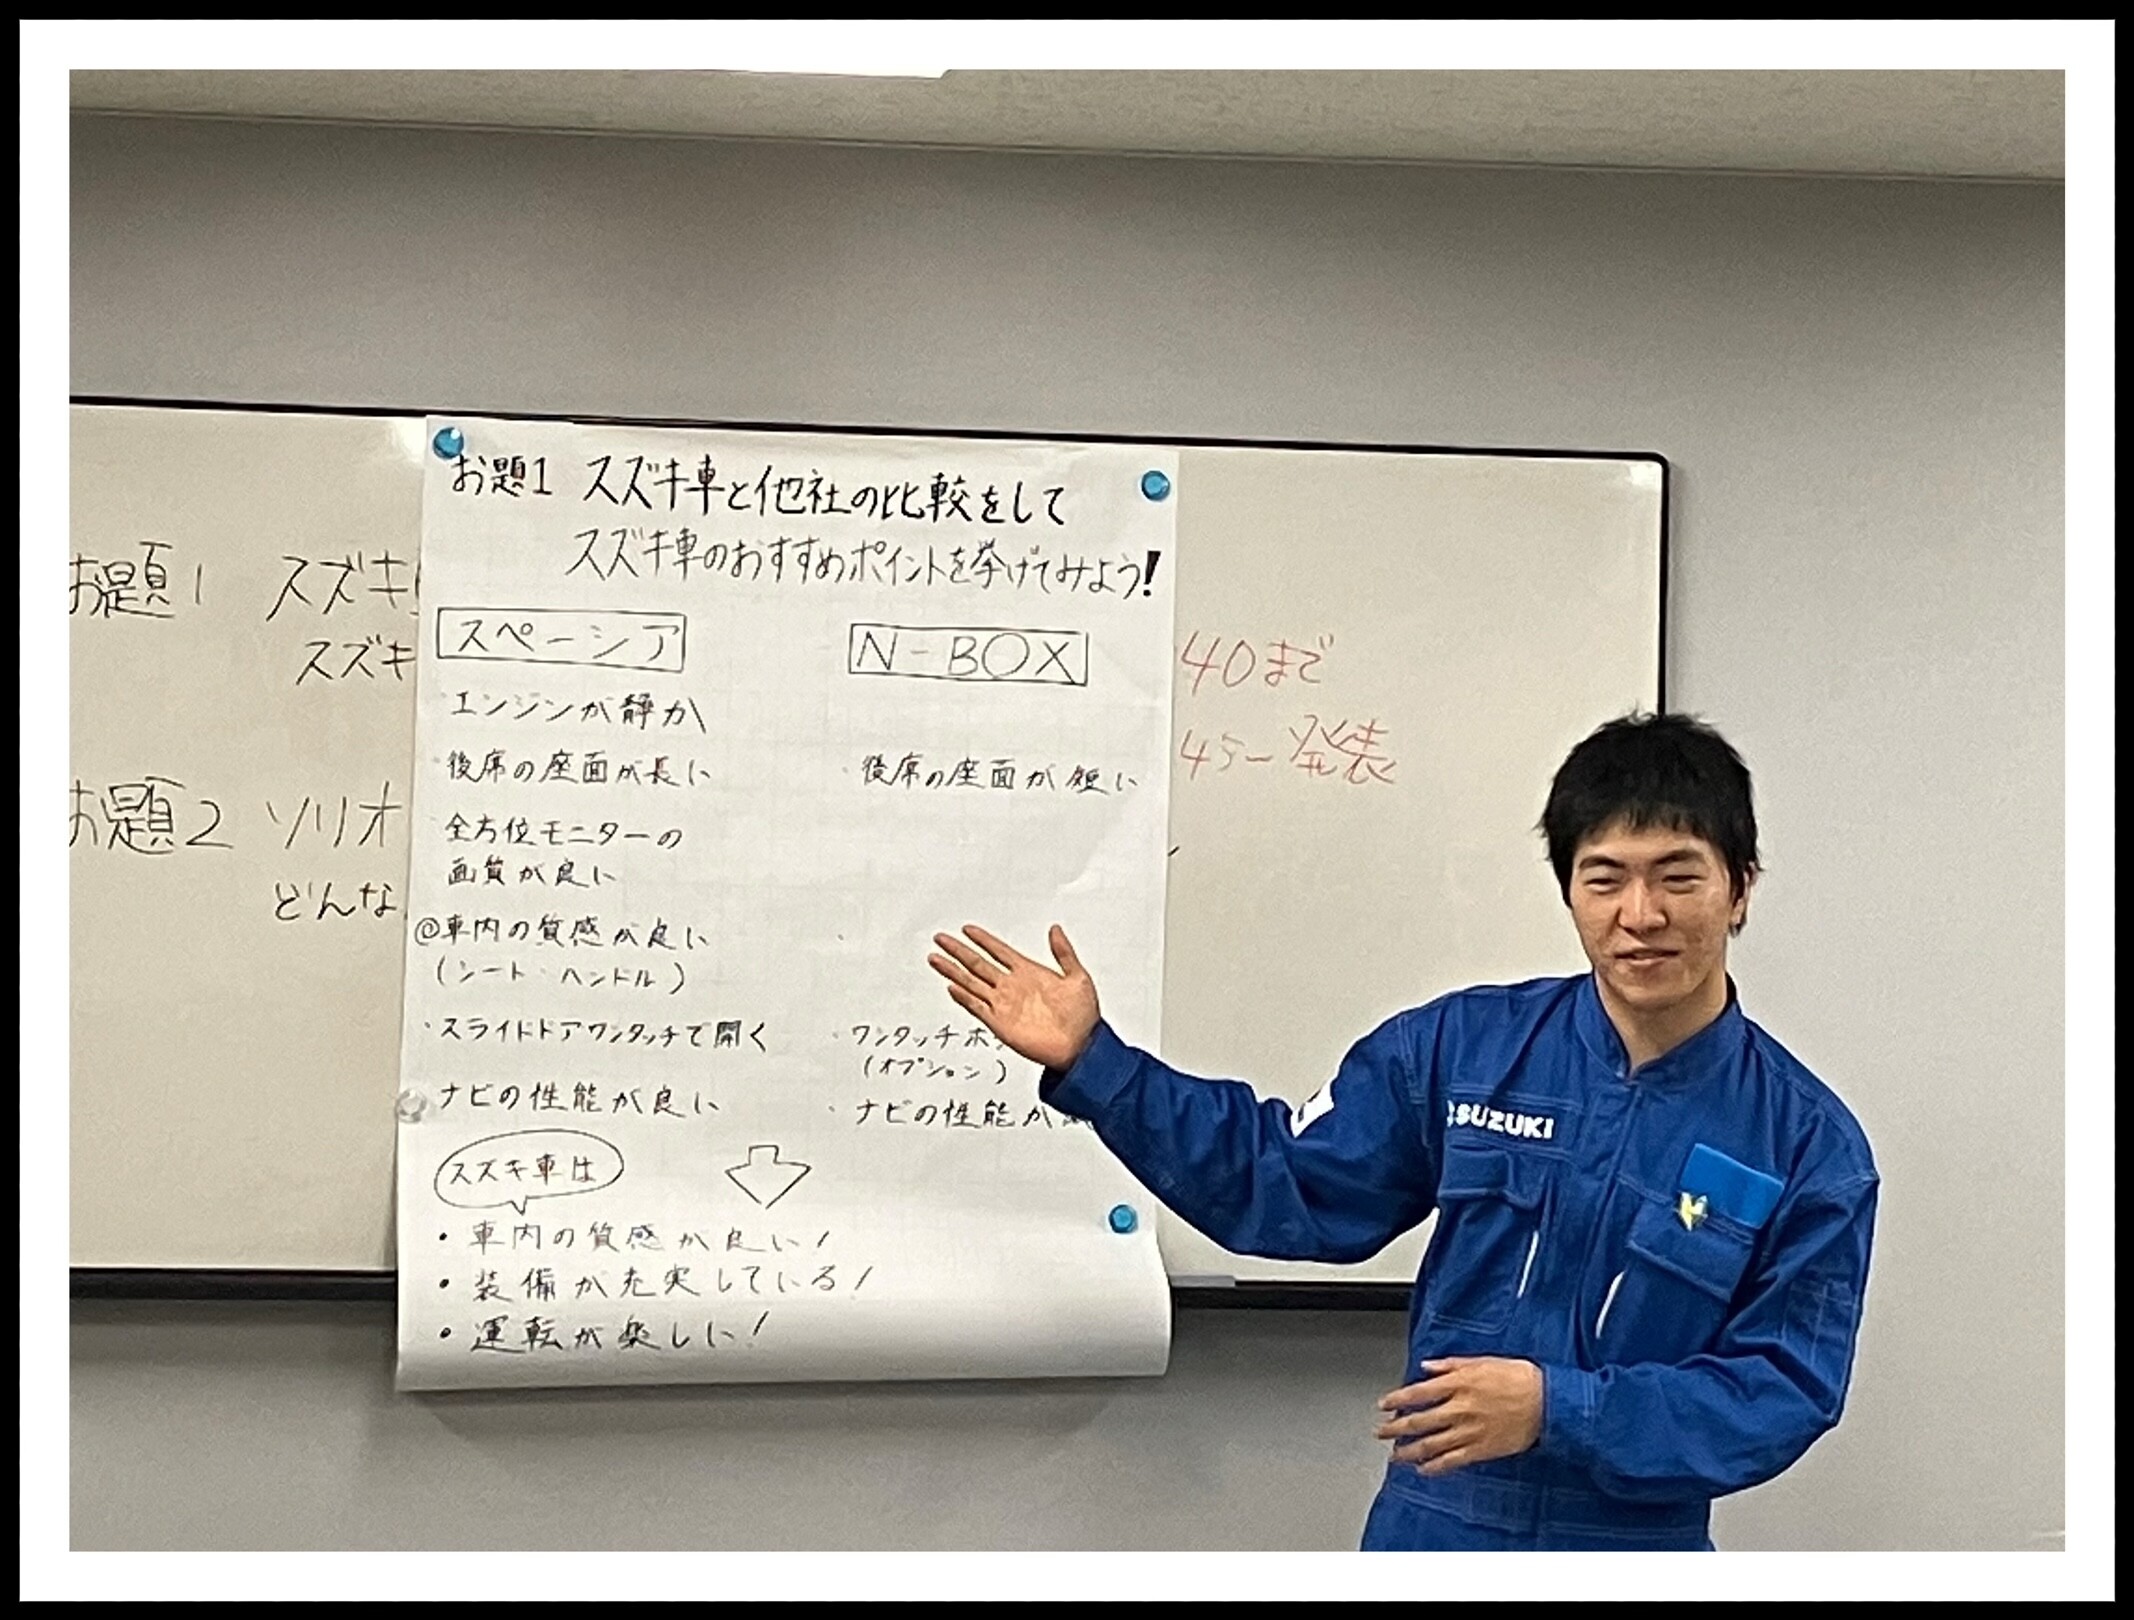 お題1 スズキ車と他社の比較をして
スズキ車のおすすめポイントを挙げてみよう!
スペーシア
・エンジンが静か
・後席の座面が長い
・全方位モニターの
画質が良い
◎車内の質感が良い
(シート・ハンドル)
・スライドドアワンタッチで開く
・ナビの性能が良い
N-BOX
・後席の座面が短い
・ワンタッチ
(オプション)
・ナビの性能が
スズキ車は
・車内の質感が良い!
・装備が充実している!
・運転が楽しい!
お題1 スズキ
スズキ
お題2 ソリオ
どんな
40まで
45~発表
SUZUKI